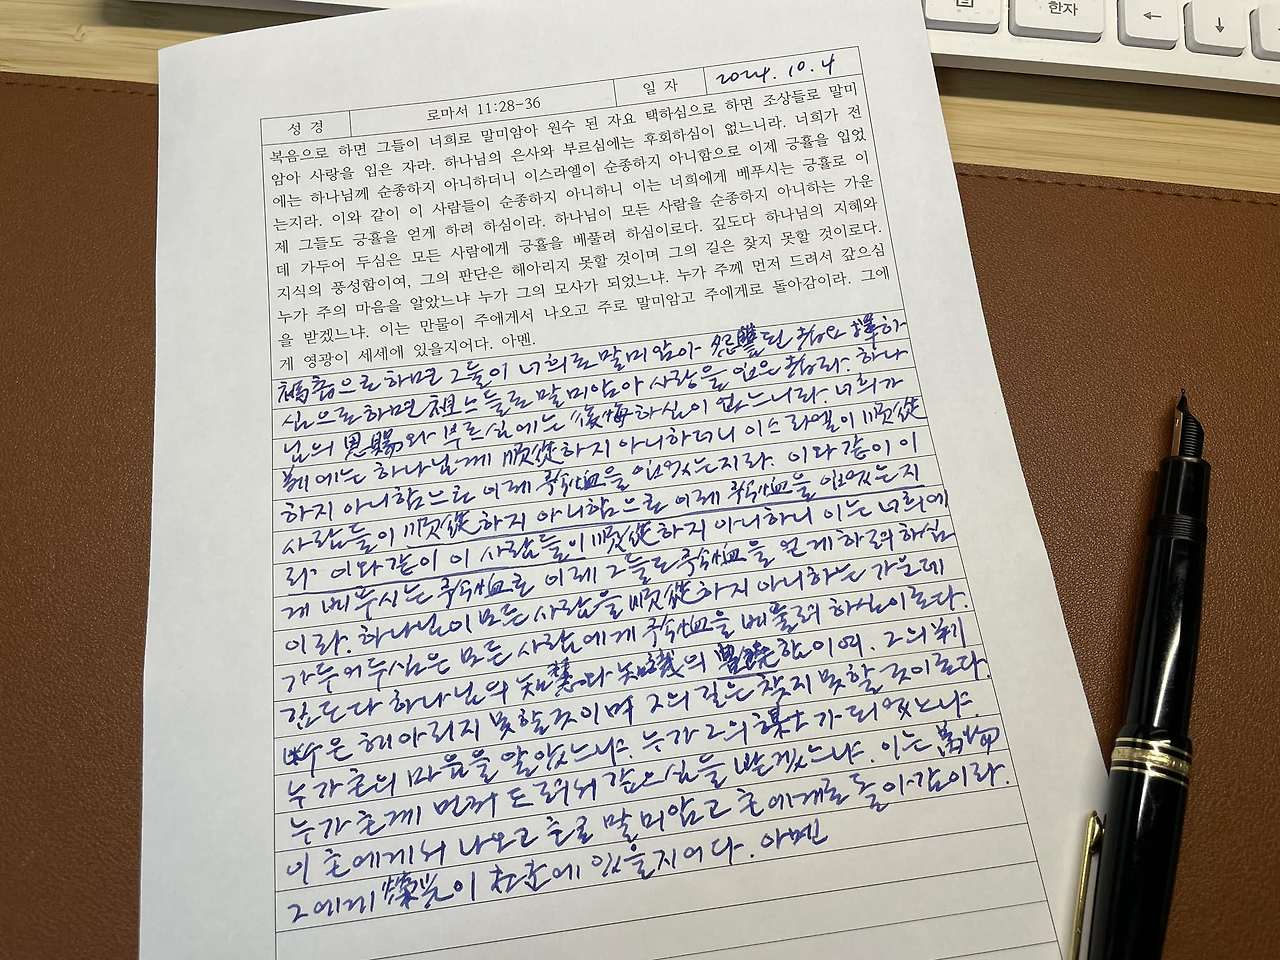 한자
← ↓
성 경 로마서 11:28-36 일 자 2024. 10. 4
복음으로 하면 그들이 너희로 말미암아 원수 된 자요 택하심으로 하면 조상들로 말미
암아 사랑을 입은 자라. 하나님의 은사와 부르심에는 후회하심이 없느니라. 너희가 전
에는 하나님께 순종하지 아니하더니 이스라엘이 순종하지 아니함으로 이제 긍휼을 입었
는지라. 이와 같이 이 사람들이 순종하지 아니하니 이는 너희에게 베푸시는 긍휼로 이
제 그들도 긍휼을 얻게 하려 하심이라. 하나님이 모든 사람을 순종하지 아니하는 가운
데 가두어 두심은 모든 사람에게 긍휼을 베풀려 하심이로다. 깊도다 하나님의 지혜와
지식의 풍성함이여, 그의 판단은 헤아리지 못할 것이며 그의 길은 찾지 못할 것이로다.
누가 주의 마음을 알았느냐 누가 그의 모사가 되었느냐. 누가 주께 먼저 드려서 갚으심
을 받겠느냐. 이는 만물이 주에게서 나오고 주로 말미암고 주에게로 돌아감이라. 그에
게 영광이 세세에 있을지어다. 아멘.
福音으로 하면 그들이 너희로 말미암아 怨讐된 者요 擇하
심으로 하면 들로 말미암아 사랑을 입은 者라. 하나
님의 恩賜와 부르심에는 後悔하심이 없느니라. 너희가
前에는 하나님께 順從하지 아니하더니 이스라엘이 順從
하지 아니함으로 이제 을 입었는지라. 이와 같이 이
사람들이 順從하지 아니함으로 이제 을 입었는지
라. 이와 같이 이 사람들이 順從하지 아니하니 이는 너희에
게 베푸시는 로 이제 그들도 을 얻게 하려 하심
이라. 하나님이 모든 사람을 順從하지 아니하는 가운데
가두어 두심은 모든 사람에게 을 베풀려 하심이로다.
깊도다 하나님의 知慧와 知識의 함이여. 그의 判
은 헤아리지 못할 것이며 그의 길은 찾지 못할 것이로다.
누가 主의 마음을 알았느냐. 누가 그의 謀士가 되었느냐.
누가 主께 먼저 드려서 갚으심을 받겠느냐. 이는 萬物
이 主에게서 나오고 主로 말미암고 主에게로 돌아감이라.
그에게 榮光이 에 있을지어다. 아멘